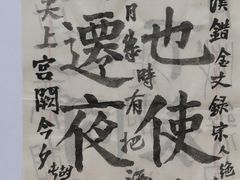 漢錯金文録
也使
月幾時有把酒
遷夜
天上宮闕今夕